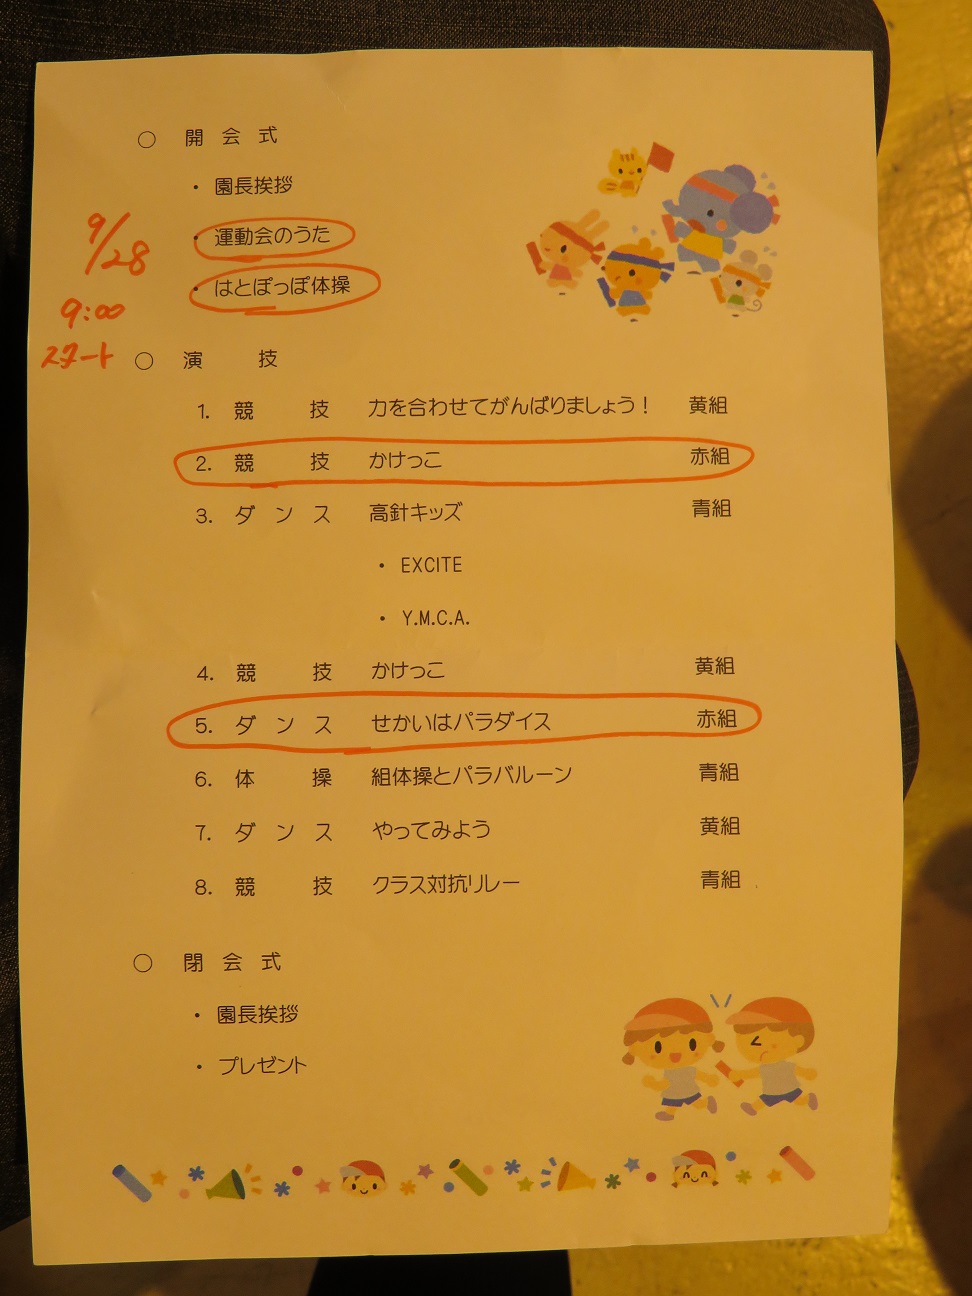 ○ 開 会 式
・ 園長挨拶
・ 運動会のうた
・ はとぽっぽ体操
9/28
9:00
スタート
○ 演 技
1. 競 技 力を合わせてがんばりましょう! 黄組
2. 競 技 かけっこ 赤組
3. ダ ン ス 高針キッズ 青組
・ EXCITE
・ Y.M.C.A.
4. 競 技 かけっこ 黄組
5. ダ ン ス せかいはパラダイス 赤組
6. 体 操 組体操とパラバルーン 青組
7. ダ ン ス やってみよう 黄組
8. 競 技 クラス対抗リレー 青組
○ 閉 会 式
・ 園長挨拶
・ プレゼント